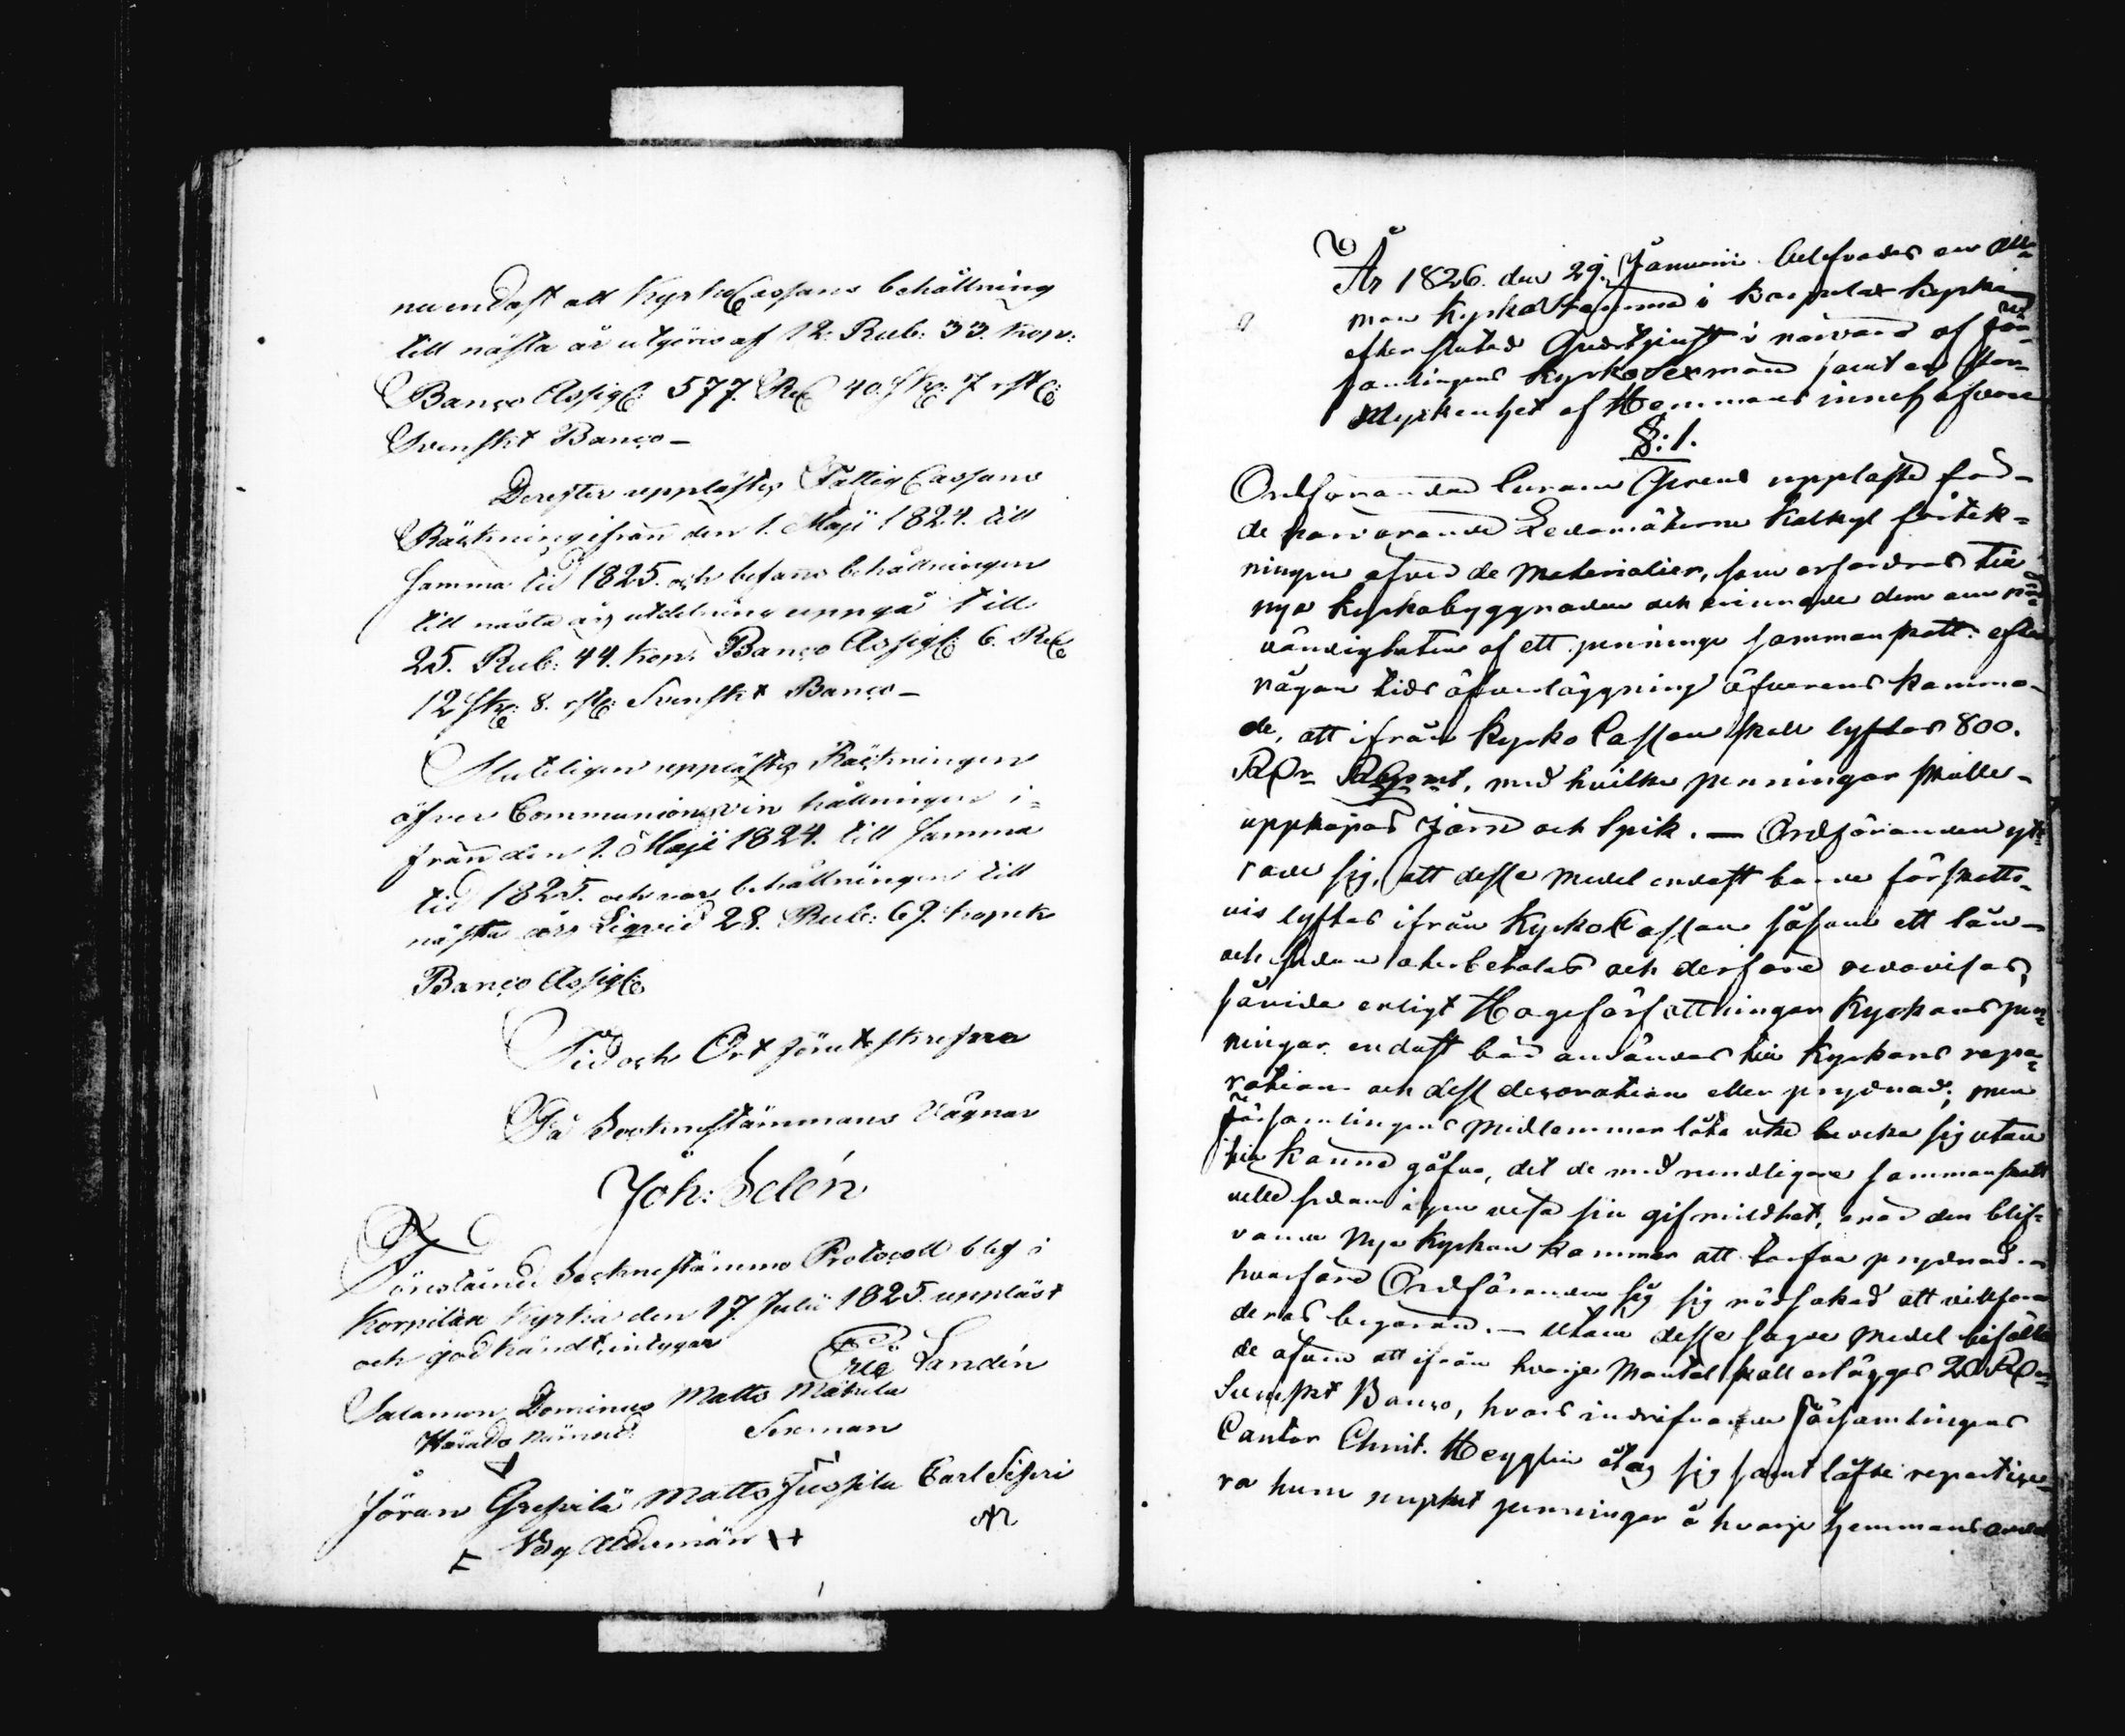 nu endast att KyrkoCassans behållning
till nästa år utgöres af 12. Rub: 33. Kop:
Banco Assign: 577. Rd 40. sk: 7 rst:
Svenskt Banco_
Derefter upplästes FattigCassans
Räkning ifrån den 1. Maji 1824. till
samma tid 1825. och befans behållningen
till nästa års utdelning uppgå till
25. Rub: 44. Kop: Banco Assign: 6. Rd
12 sk: 8. rst: Svenskt Banco_
Sluteligen upplästes Räkningen
öfver Communionsvin hållningen i=
från den 1. Maji 1824. till samma
tid 1825. och var behållningen till
nästa års Liqvid 28. Rub: 69. kopek
Banco Assign:
Tid och Ort förutskrefna
På Sockenstämmans Vägnar
Joh: Selén
Förestående Sockenstämmo Protocoll blef i
Korpilax Kyrka den 17. Julii 1825. uppläst
och godkändt, intygar Eric Sandén
Salamon Dominus Matts Mäkelä
Härads nämnd: Sexman
Jöran Grepilä Matts Juopila Carl Sipari
Bÿ Ålderman
År 1826. den 29. Januari belefvades en All=
män Kyrkostämma i Korpilax Kyrka
efter slutad Gudstjenst i närvaro af För=
samlingens Kyrko Sexmän samt en stor
Myckenhet af Hemmans innehafvare
§: 1.
Ordföranden Curam Gerens uppläste för
de närvarande Ledamöterne Kalkyl förtek=
ningen öfver de Materialier, som erfordras till
nya Kyrkobyggnaden och erinrade dem om nöd=
vändigheten af ett pennings sammanskott. efter
någon tids öfverläggning öfverens kommo
de, att ifrån Kyrko Cassan skall lyftas 800.
med hvilka penningar skulle
uppköpas Järn och Spik. — Ordföranden ytt=
rade sig, att desse medel endast borde förskotts=
vis lyftas ifrån KyrkoCassan såsom ett lån
och sedan återbetalas och derföre redovisas,
såvida enligt Höga författningar Kyrkans pen=
ningar endast bör användas till Kyrkans repa=
ration och dess decoration eller prydnad; men
Församlingens Medlemmar läto icke beveka sig utan
till Känna gåfvo, det de med nödigare sammanskott
ville sedan igen visa sin gifmildhet, när den blif=
vande Nya Kyrkan kommer att behöfva prydnad. —
hvarföre Ordföranden såg sig nödsakad att villfara
deras begäran. — Utom desse sagde medel biföllo
de äfven att ifrån hvarje Mantal skall erläggas 20 R:
Svenskt Banco, hvars indrifvande Församlingens
Cantor Christ. Heyglin åtog sig samt låfte repartise=
ra huru mycket penningar å hvarje hemmans andel